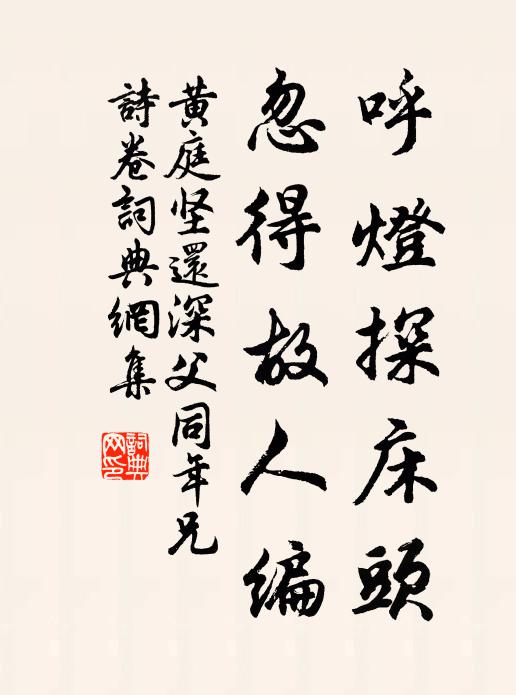 呼燈探床頭
忽得故人編
黄庭坚還深父同年兄
詩卷詞典網集
詞典网印